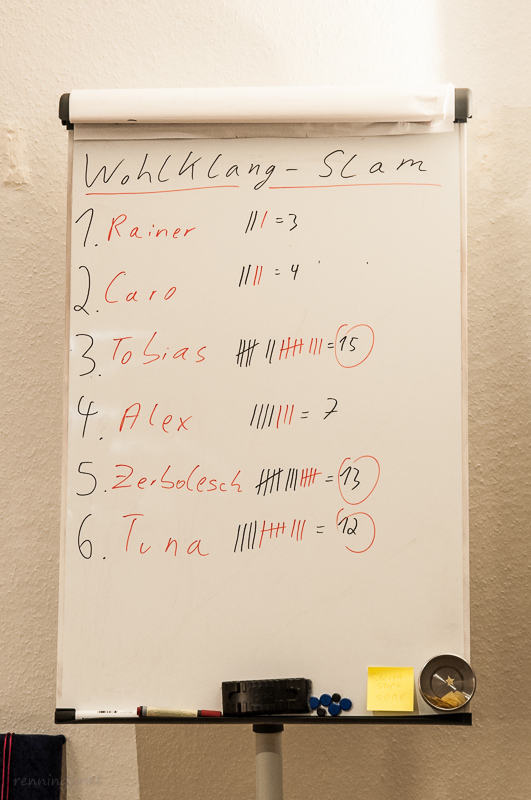 Wohlklang - Slam
1. Rainer ||| = 3
2. Caro |||| = 4
3. Tobias |||| || |||| ||| = 15
4. Alex ||||||| = 7
5. Zerbolesch |||| ||| |||| = 13
6. Tuna |||| |||| ||| = 12